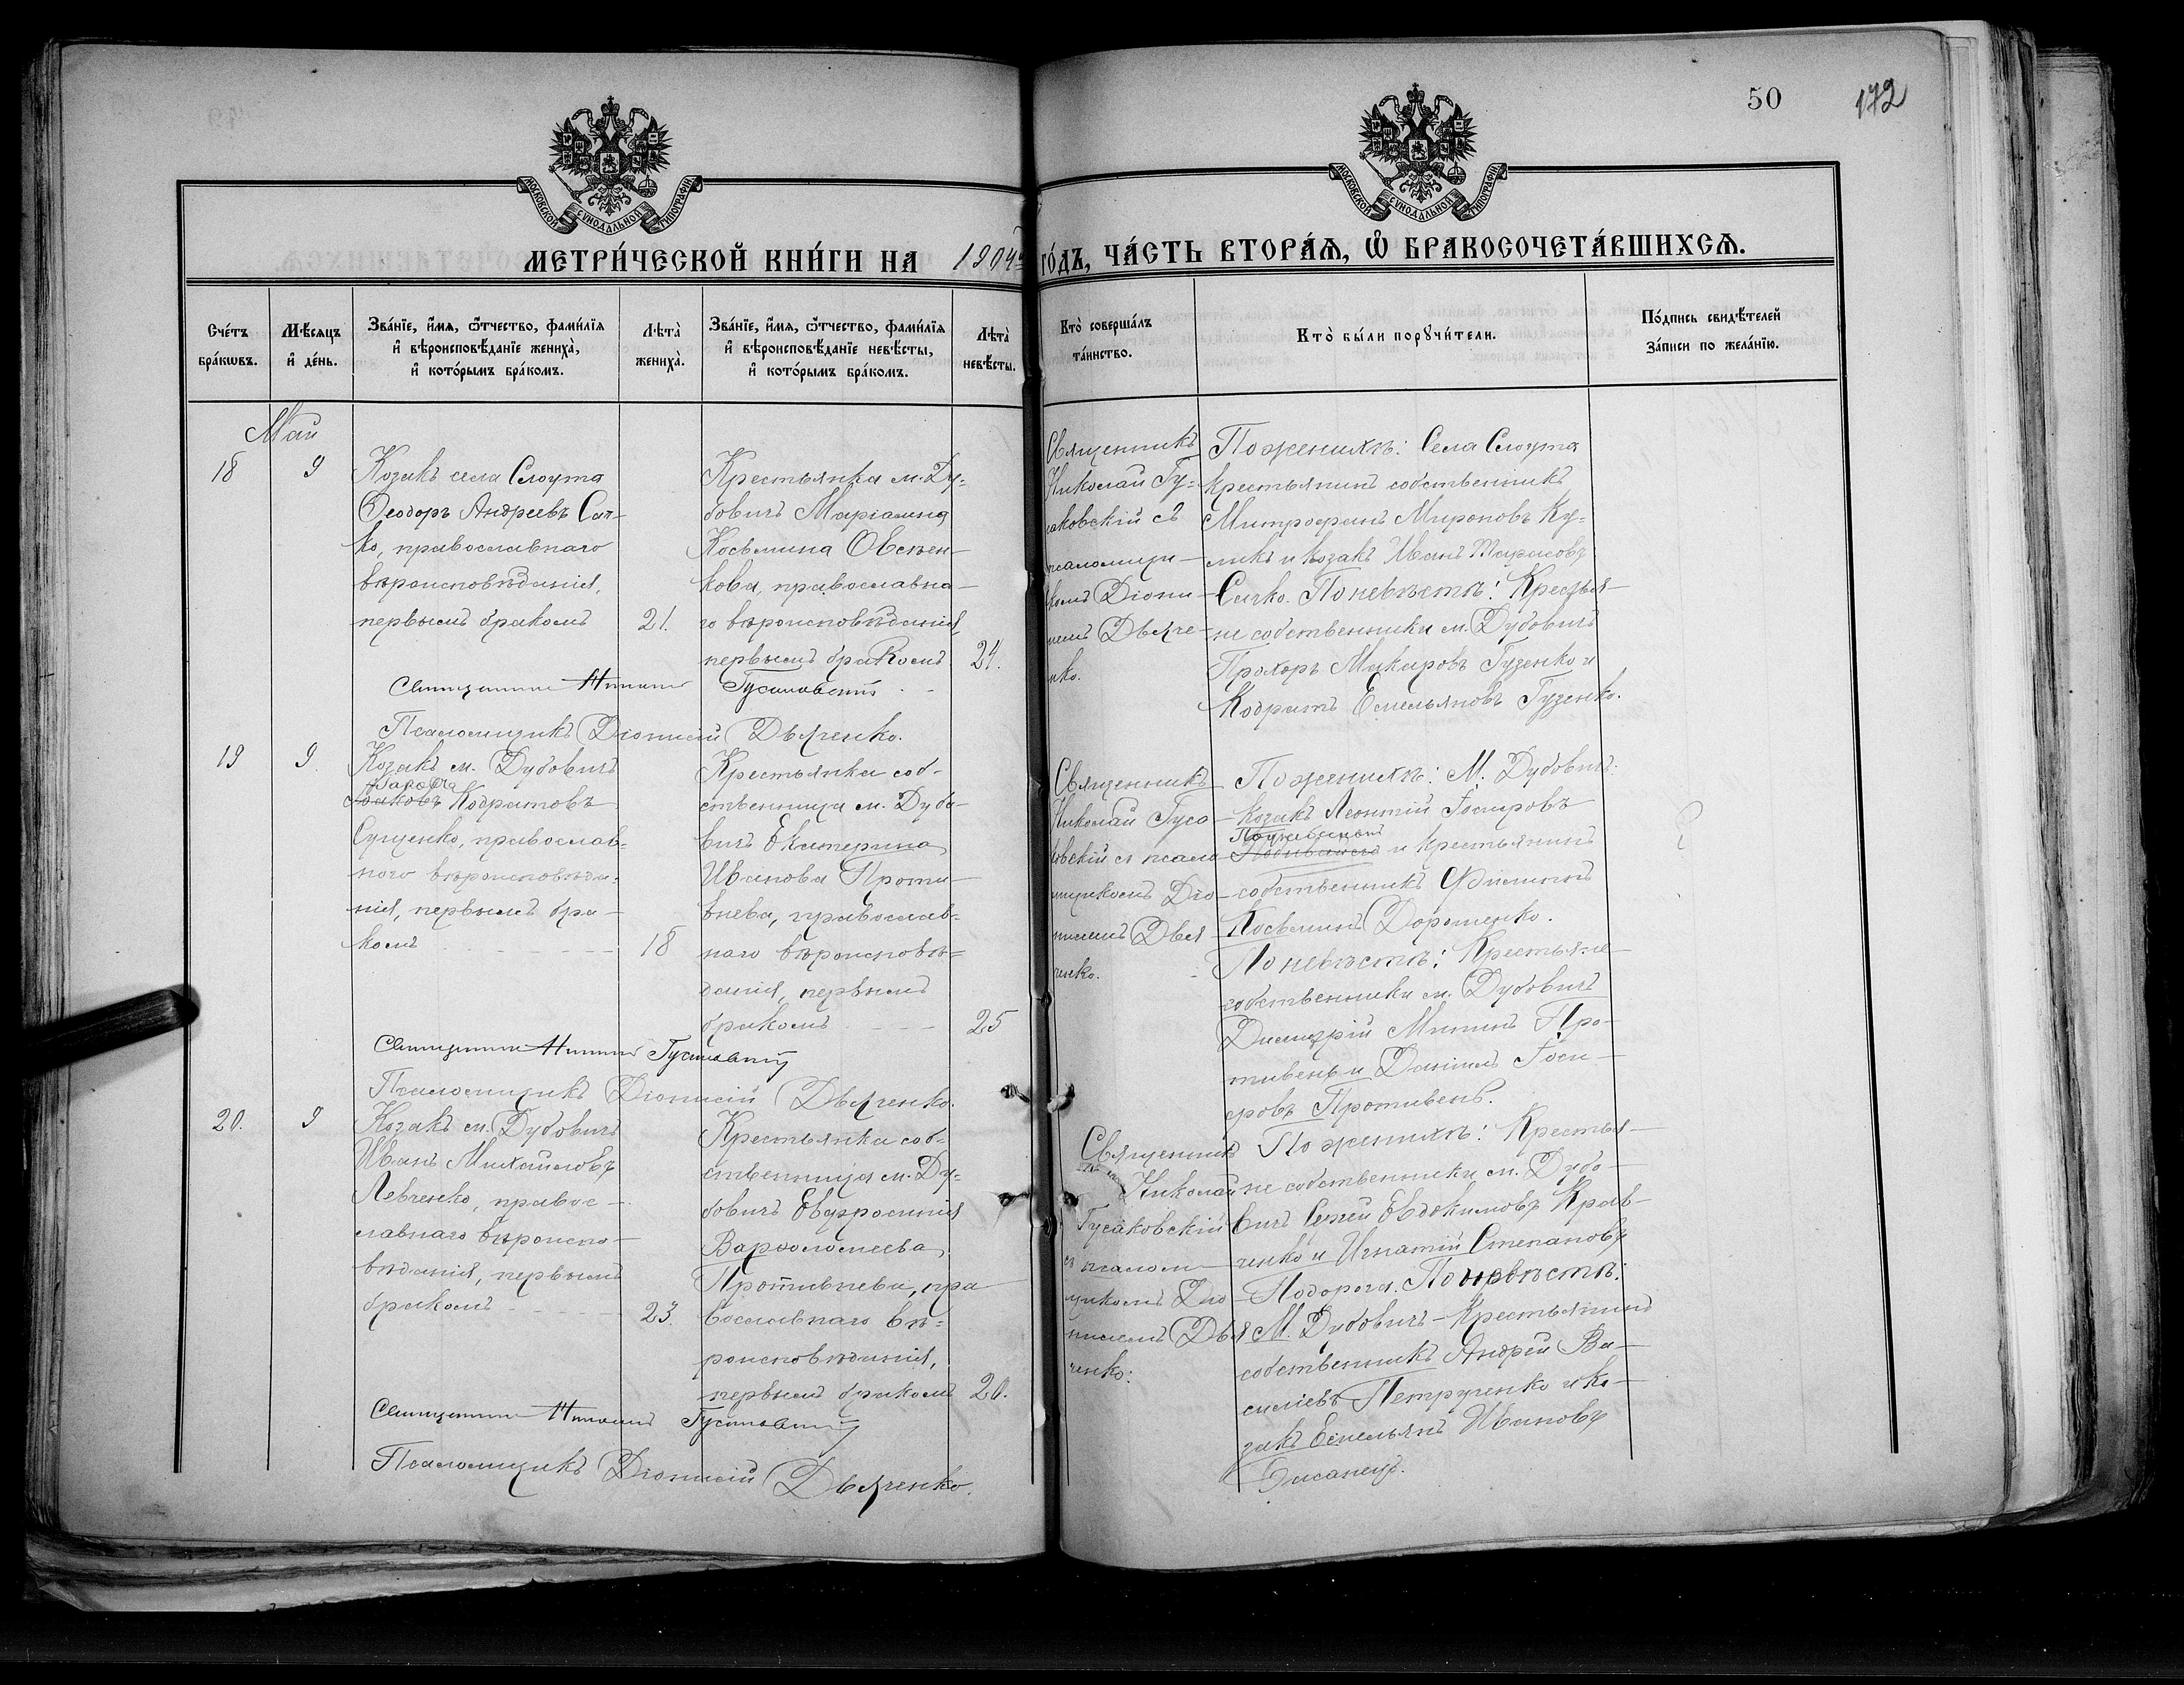 50
172
МОСКОВСКОЙ СѴНОДАЛЬНОЙ ТИПОГРАФІИ
МОСКОВСКОЙ СѴНОДАЛЬНОЙ ТИПОГРАФІИ
МЕТРИ́ЧЕСКОЙ КНИ́ГИ НА 1904й ГО́ДЪ, ЧА́СТЬ ВТОРА́Ѧ, Ѽ БРАКОСОЧЕТА́ВШИХСѦ.
Сче́тъ
бра́кѡвъ.
Мѣ́сѧцъ
и҆ де́нь.
Зва́нїе, и҆́мѧ, ѻ҆́тчество, фамилїѧ
и҆ вѣроисповѣ́данїе жениха̀,
и҆ кото́рымъ бра́комъ.
Лѣта̀
жениха̀.
Зва́нїе, и҆́мѧ, ѻ҆́тчество, фамилїѧ
и҆ вѣроисповѣ́данїе невѣ́сты,
и҆ кото́рымъ бра́комъ.
Лѣта̀
невѣ́сты.
Кто̀ соверша́лъ
та́инство.
Кто̀ бы́ли порꙋчи́тели.
По́дпись свидѣ́телей
за́писи по жела́нїю.
Май
18
9
Козакъ села Слоута
Ѳеодоръ Андреевъ Сич-
ко, православнаго
вѣроисповѣданія,
первымъ бракомъ
21.
Крестьянка м. Ду-
бовичъ Маріамна
Косьмина Овсѣен-
кова, православна-
го вѣроисповѣданія,
первымъ бракомъ
24.
Священникъ
Николай Гу-
саковскій съ
псаломщи-
комъ Діони-
сіемъ Дьяче-
нко.
По женихѣ: Села Слоута
крестьянинъ собственникъ
Митрофанъ Мироновъ Ку-
ликъ и козакъ Иванъ Тарасовъ
Сичко. По невѣстѣ: Крестья-
не собственники м. Дубовичъ
Прохоръ Макаровъ Гузенко и
Кодратъ Емельяновъ Гузенко.
Священникъ Николай Гусаковскій
Псаломщикъ Діонисій Дьяченко.
19
9.
Козакъ м. Дубовичъ
Іаковъ Кодратовъ
Сущенко, православ-
наго вѣроисповѣда-
нія, первымъ бра-
комъ
18
Крестьянка соб-
ственница м. Дубо-
вичъ Екатерина
Иванова Проти-
внева, православ-
наго вѣроисповѣ-
данія, первымъ
бракомъ
25
Священникъ
Николай Гуса-
ковскій съ псало-
мщикомъ Діо-
нисіемъ Дья-
ченко.
По женихѣ: М. Дубовичъ:
козакъ Леонтій Іосифовъ
и крестьянинъ
собственникъ Филиппъ
Косьминъ Дорошенко.
По невѣстѣ: Крестьяне
собственники м. Дубовичъ
Димитрій Мининъ Про-
тивень и Даніилъ Іоси-
фовъ Противень.
Священникъ Николай Гусаковскій
Псаломщикъ Діонисій Дьяченко.
20.
9
Козакъ м. Дубовичъ
Иванъ Михайловъ
Левченко, правос-
лавнаго вѣроиспо-
вѣданія, первымъ
бракомъ
23.
Крестьянка соб-
ственница м. Ду-
бовичъ Евфросинія
Варѳоломеева
Противнева, пра
вославнаго вѣ-
роисповѣданія,
первымъ бракомъ
20.
Священникъ
Николай
Гусаковскій
съ псалом-
щикомъ Діо-
нисіемъ Дья
ченко.
По женихѣ: Крестья-
не собственники м. Дубо-
вичъ Сергѣй Евдокимовъ Крав-
ченко и Игнатій Степановъ
Подорога. По невѣстѣ:
М. Дубовичъ - Крестьянинъ
собственникъ Андрей Ва-
силіевъ Петрученко и ко-
закъ Емельянъ Ивановъ
Священникъ Николай Гусаковскій
Псаломщикъ Діонисій Дьяченко.